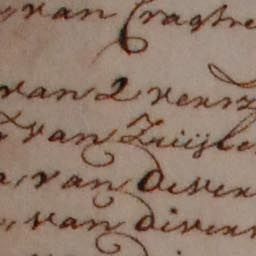 van Craghe
van 2 versz
van Zuijle
van Dever
van divers